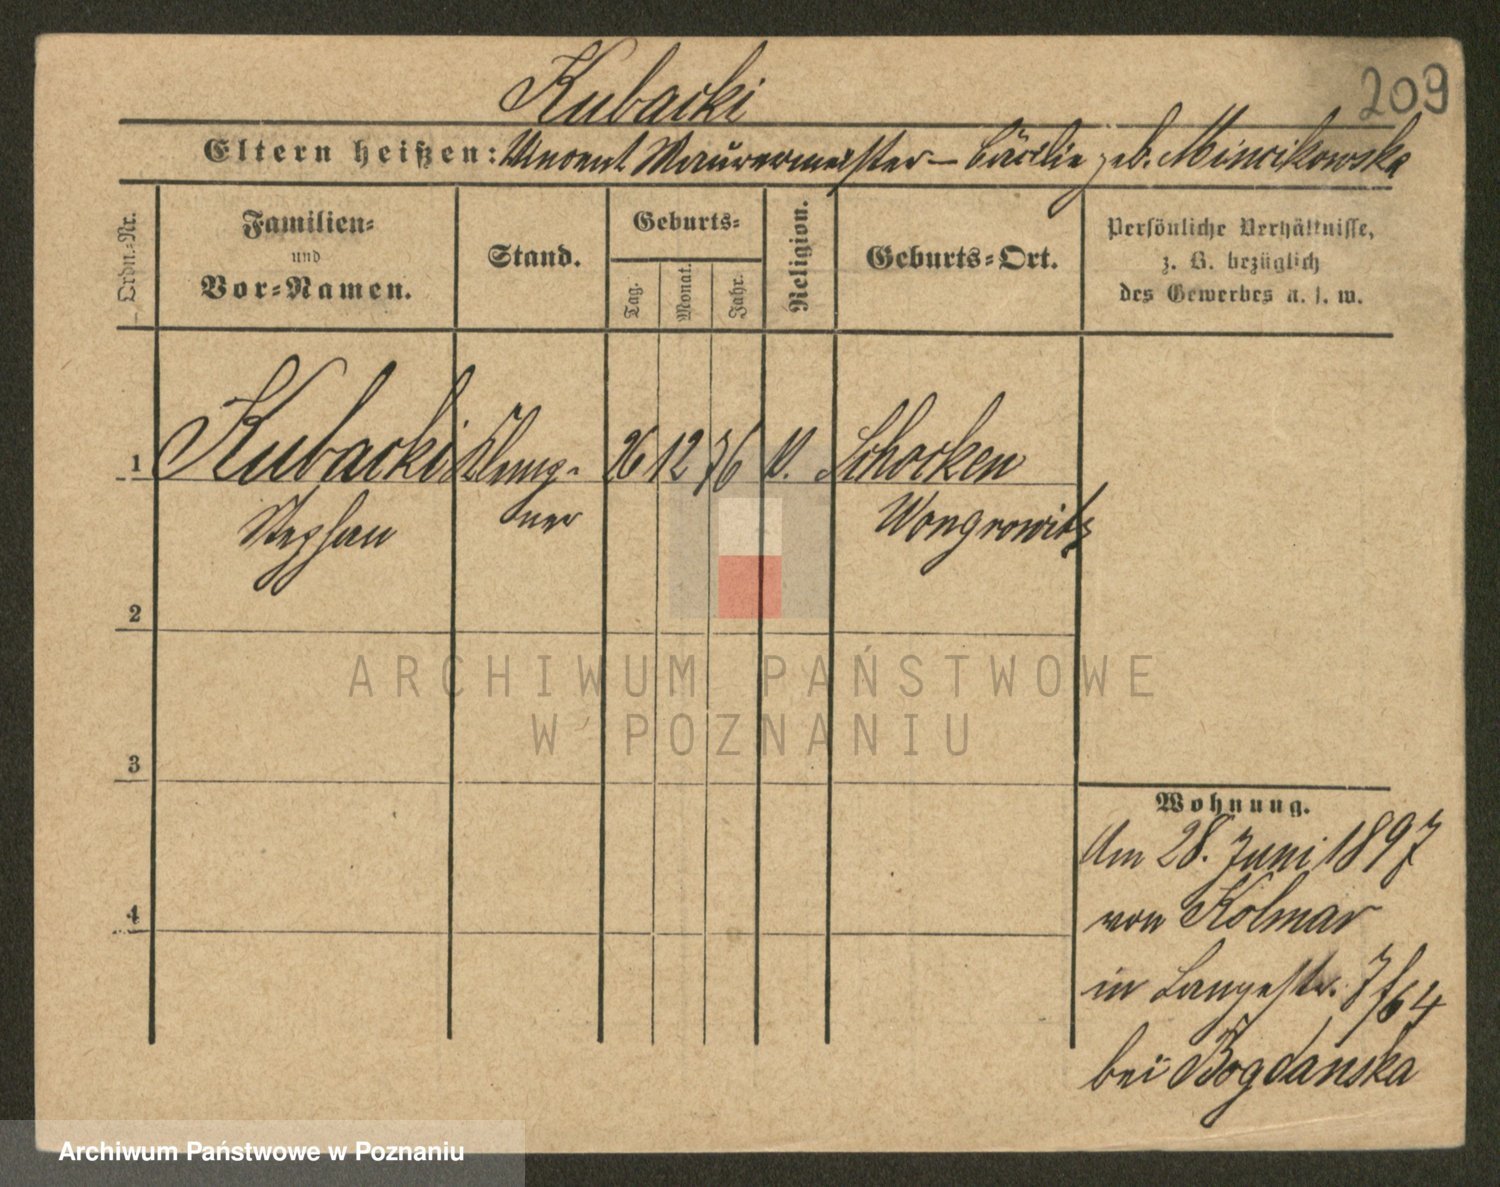 209
Kubacki
Eltern heißen: Vincent Maurermeister – Cäcilie geb. Mincikowska
Ordn.-Nr.
Familien-
und
Vor-Namen.
Stand.
Geburts-
Tag.
Monat.
Jahr.
Religion.
Geburts-Ort.
Persönliche Verhältnisse,
z. B. bezüglich
des Gewerbes u. s. w.
1 Kubacki Klemp- 26 12 76 Schocken
Stephan ner Wongrowitz
2
3
4
Wohnung.
Am 28. Juni 1897
von Kolmar
in Langestr. 7/64
bei Bogdańska
ARCHIWUM PAŃSTWOWE
W POZNANIU
Archiwum Państwowe w Poznaniu